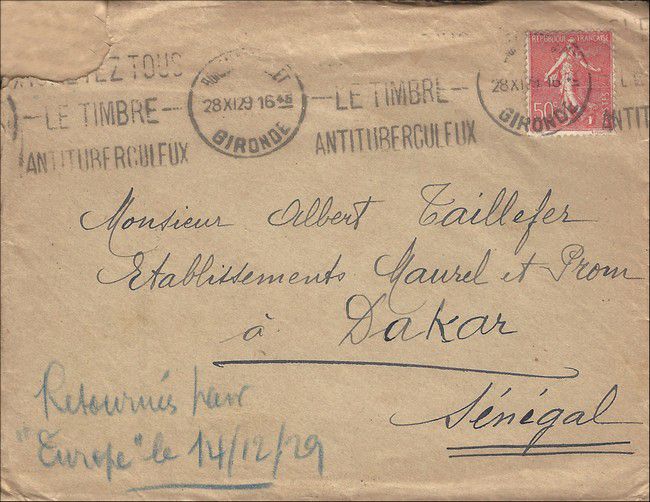 TEZ TOUS
LE TIMBRE
ANTITUBERCULEUX
28 XI 29 16
GIRONDE
LE TIMBRE
ANTITUBERCULEUX
RÉPUBLIQUE FRANÇAISE
50c
POSTES
28 XI 29 16
GIRONDE
Monsieur Albert Taillefer
Etablissements Maurel et Prom
à Dakar
Sénégal
Retournés par
"Europe" le 14/12/29